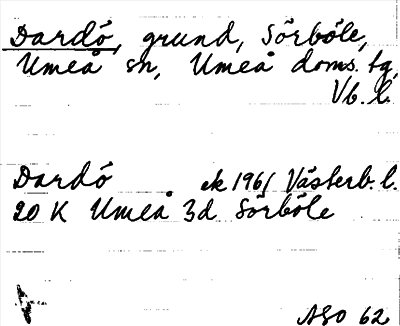 Dardö, grund, Sörböle,
Umeå sn, Umeå doms. tg,
Vb. l.
Dardö ek 1961 Västerb. l.
20 K Umeå 3d Sörböle
ASO 62